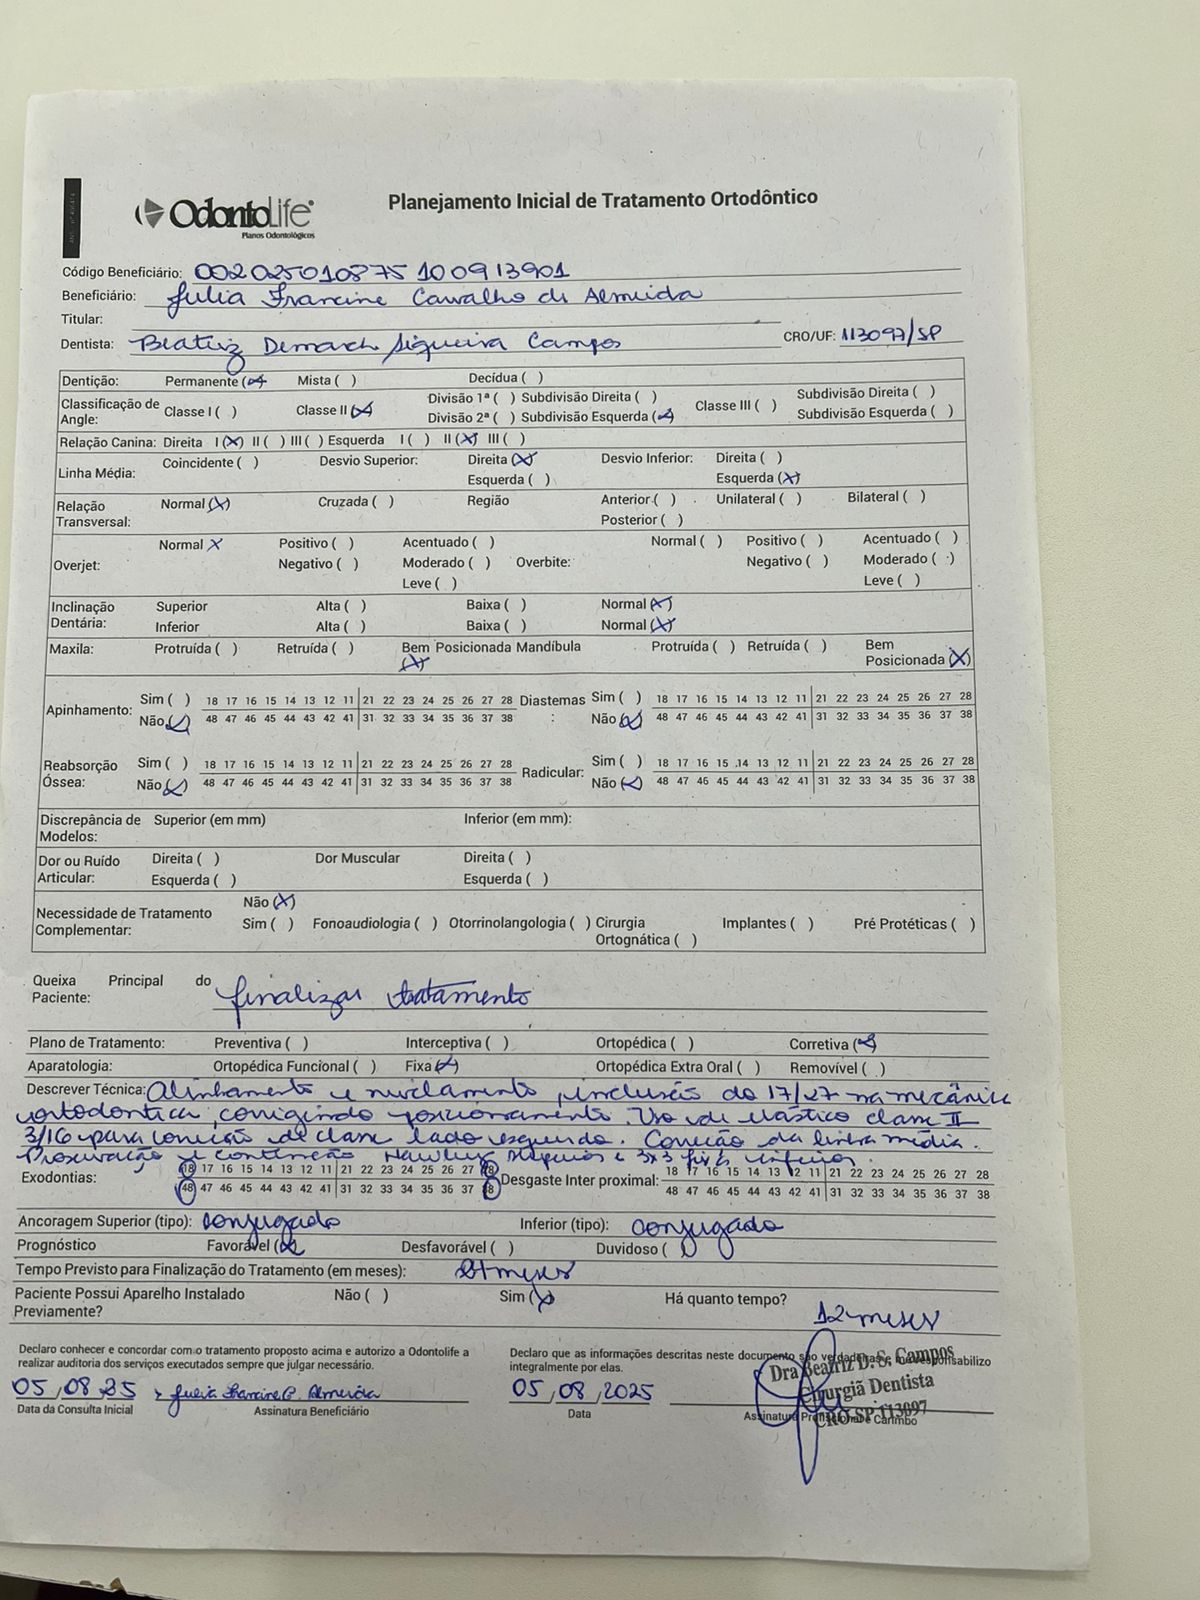 OdontoLife
Planos Odontológicos
Planejamento Inicial de Tratamento Ortodôntico
Código Beneficiário: 002025010875100913901
Beneficiário: Julia Francine Carvalho de Almeida
Titular:
Dentista: Beatriz Demarch Siqueira Campos CRO/UF: 113097/SP
Dentição: Permanente (x) Mista ( ) Decídua ( )
Classificação de Angle: Classe I ( ) Classe II (x) Divisão 1ª ( ) Subdivisão Direita ( ) Classe III ( ) Subdivisão Direita ( )
Divisão 2ª ( ) Subdivisão Esquerda (x) Subdivisão Esquerda ( )
Relação Canina: Direita I (x) II ( ) III ( ) Esquerda I ( ) II (x) III ( )
Linha Média: Coincidente ( ) Desvio Superior: Direita (x) Desvio Inferior: Direita ( )
Esquerda ( ) Esquerda (x)
Relação Transversal: Normal (x) Cruzada ( ) Região Anterior ( ) Unilateral ( ) Bilateral ( )
Posterior ( )
Overjet: Normal x Positivo ( ) Acentuado ( ) Overbite: Normal ( ) Positivo ( ) Acentuado ( )
Negativo ( ) Moderado ( ) Negativo ( ) Moderado ( )
Leve ( ) Leve ( )
Inclinação Dentária: Superior Alta ( ) Baixa ( ) Normal (x)
Inferior Alta ( ) Baixa ( ) Normal (x)
Maxila: Protruída ( ) Retruída ( ) Bem Posicionada (x) Mandíbula Protruída ( ) Retruída ( ) Bem Posicionada (x)
Apinhamento: Sim ( ) 18 17 16 15 14 13 12 11 21 22 23 24 25 26 27 28 Diastemas: Sim ( ) 18 17 16 15 14 13 12 11 21 22 23 24 25 26 27 28
Não (x) 48 47 46 45 44 43 42 41 31 32 33 34 35 36 37 38 Não (x) 48 47 46 45 44 43 42 41 31 32 33 34 35 36 37 38
Reabsorção Óssea: Sim ( ) 18 17 16 15 14 13 12 11 21 22 23 24 25 26 27 28 Radicular: Sim ( ) 18 17 16 15 14 13 12 11 21 22 23 24 25 26 27 28
Não (x) 48 47 46 45 44 43 42 41 31 32 33 34 35 36 37 38 Não (x) 48 47 46 45 44 43 42 41 31 32 33 34 35 36 37 38
Discrepância de Modelos: Superior (em mm) Inferior (em mm):
Dor ou Ruído Articular: Direita ( ) Dor Muscular Direita ( )
Esquerda ( ) Esquerda ( )
Necessidade de Tratamento Complementar: Não (x)
Sim ( ) Fonoaudiologia ( ) Otorrinolangologia ( ) Cirurgia Ortognática ( ) Implantes ( ) Pré Protéticas ( )
Queixa Principal do Paciente: finalizar tratamento
Plano de Tratamento: Preventiva ( ) Interceptiva ( ) Ortopédica ( ) Corretiva (x)
Aparatologia: Ortopédica Funcional ( ) Fixa (x) Ortopédica Extra Oral ( ) Removível ( )
Descrever Técnica: Alinhamento e nivelamento, inclusão do 17/27 na mecânica
ortodontica, corrigindo posicionamento. Uso de elástico classe II
3/16 para correção de classe lado esquerdo. Correção da linha média.
Proservação e contenção Hawley superior e 3x3 fixa inferior.
Exodontias: 18 17 16 15 14 13 12 11 21 22 23 24 25 26 27 28 Desgaste Inter proximal: 18 17 16 15 14 13 12 11 21 22 23 24 25 26 27 28
48 47 46 45 44 43 42 41 31 32 33 34 35 36 37 38 48 47 46 45 44 43 42 41 31 32 33 34 35 36 37 38
Ancoragem Superior (tipo): conjugado Inferior (tipo): conjugado
Prognóstico Favorável (x) Desfavorável ( ) Duvidoso ( )
Tempo Previsto para Finalização do Tratamento (em meses): meses
Paciente Possui Aparelho Instalado Previamente? Não ( ) Sim (x) Há quanto tempo? 12 meses
Declaro conhecer e concordar com o tratamento proposto acima e autorizo a Odontolife a
realizar auditoria dos serviços executados sempre que julgar necessário.
Declaro que as informações descritas neste documento são verdadeiras e me responsabilizo
integralmente por elas.
05/08/25 Julia Francine C. Almeida
Data da Consulta Inicial Assinatura Beneficiário
05/08/2025
Data
Dra Beatriz D. S. Campos
Cirurgiã Dentista
CRO SP 113097
Assinatura Profissional e Carimbo